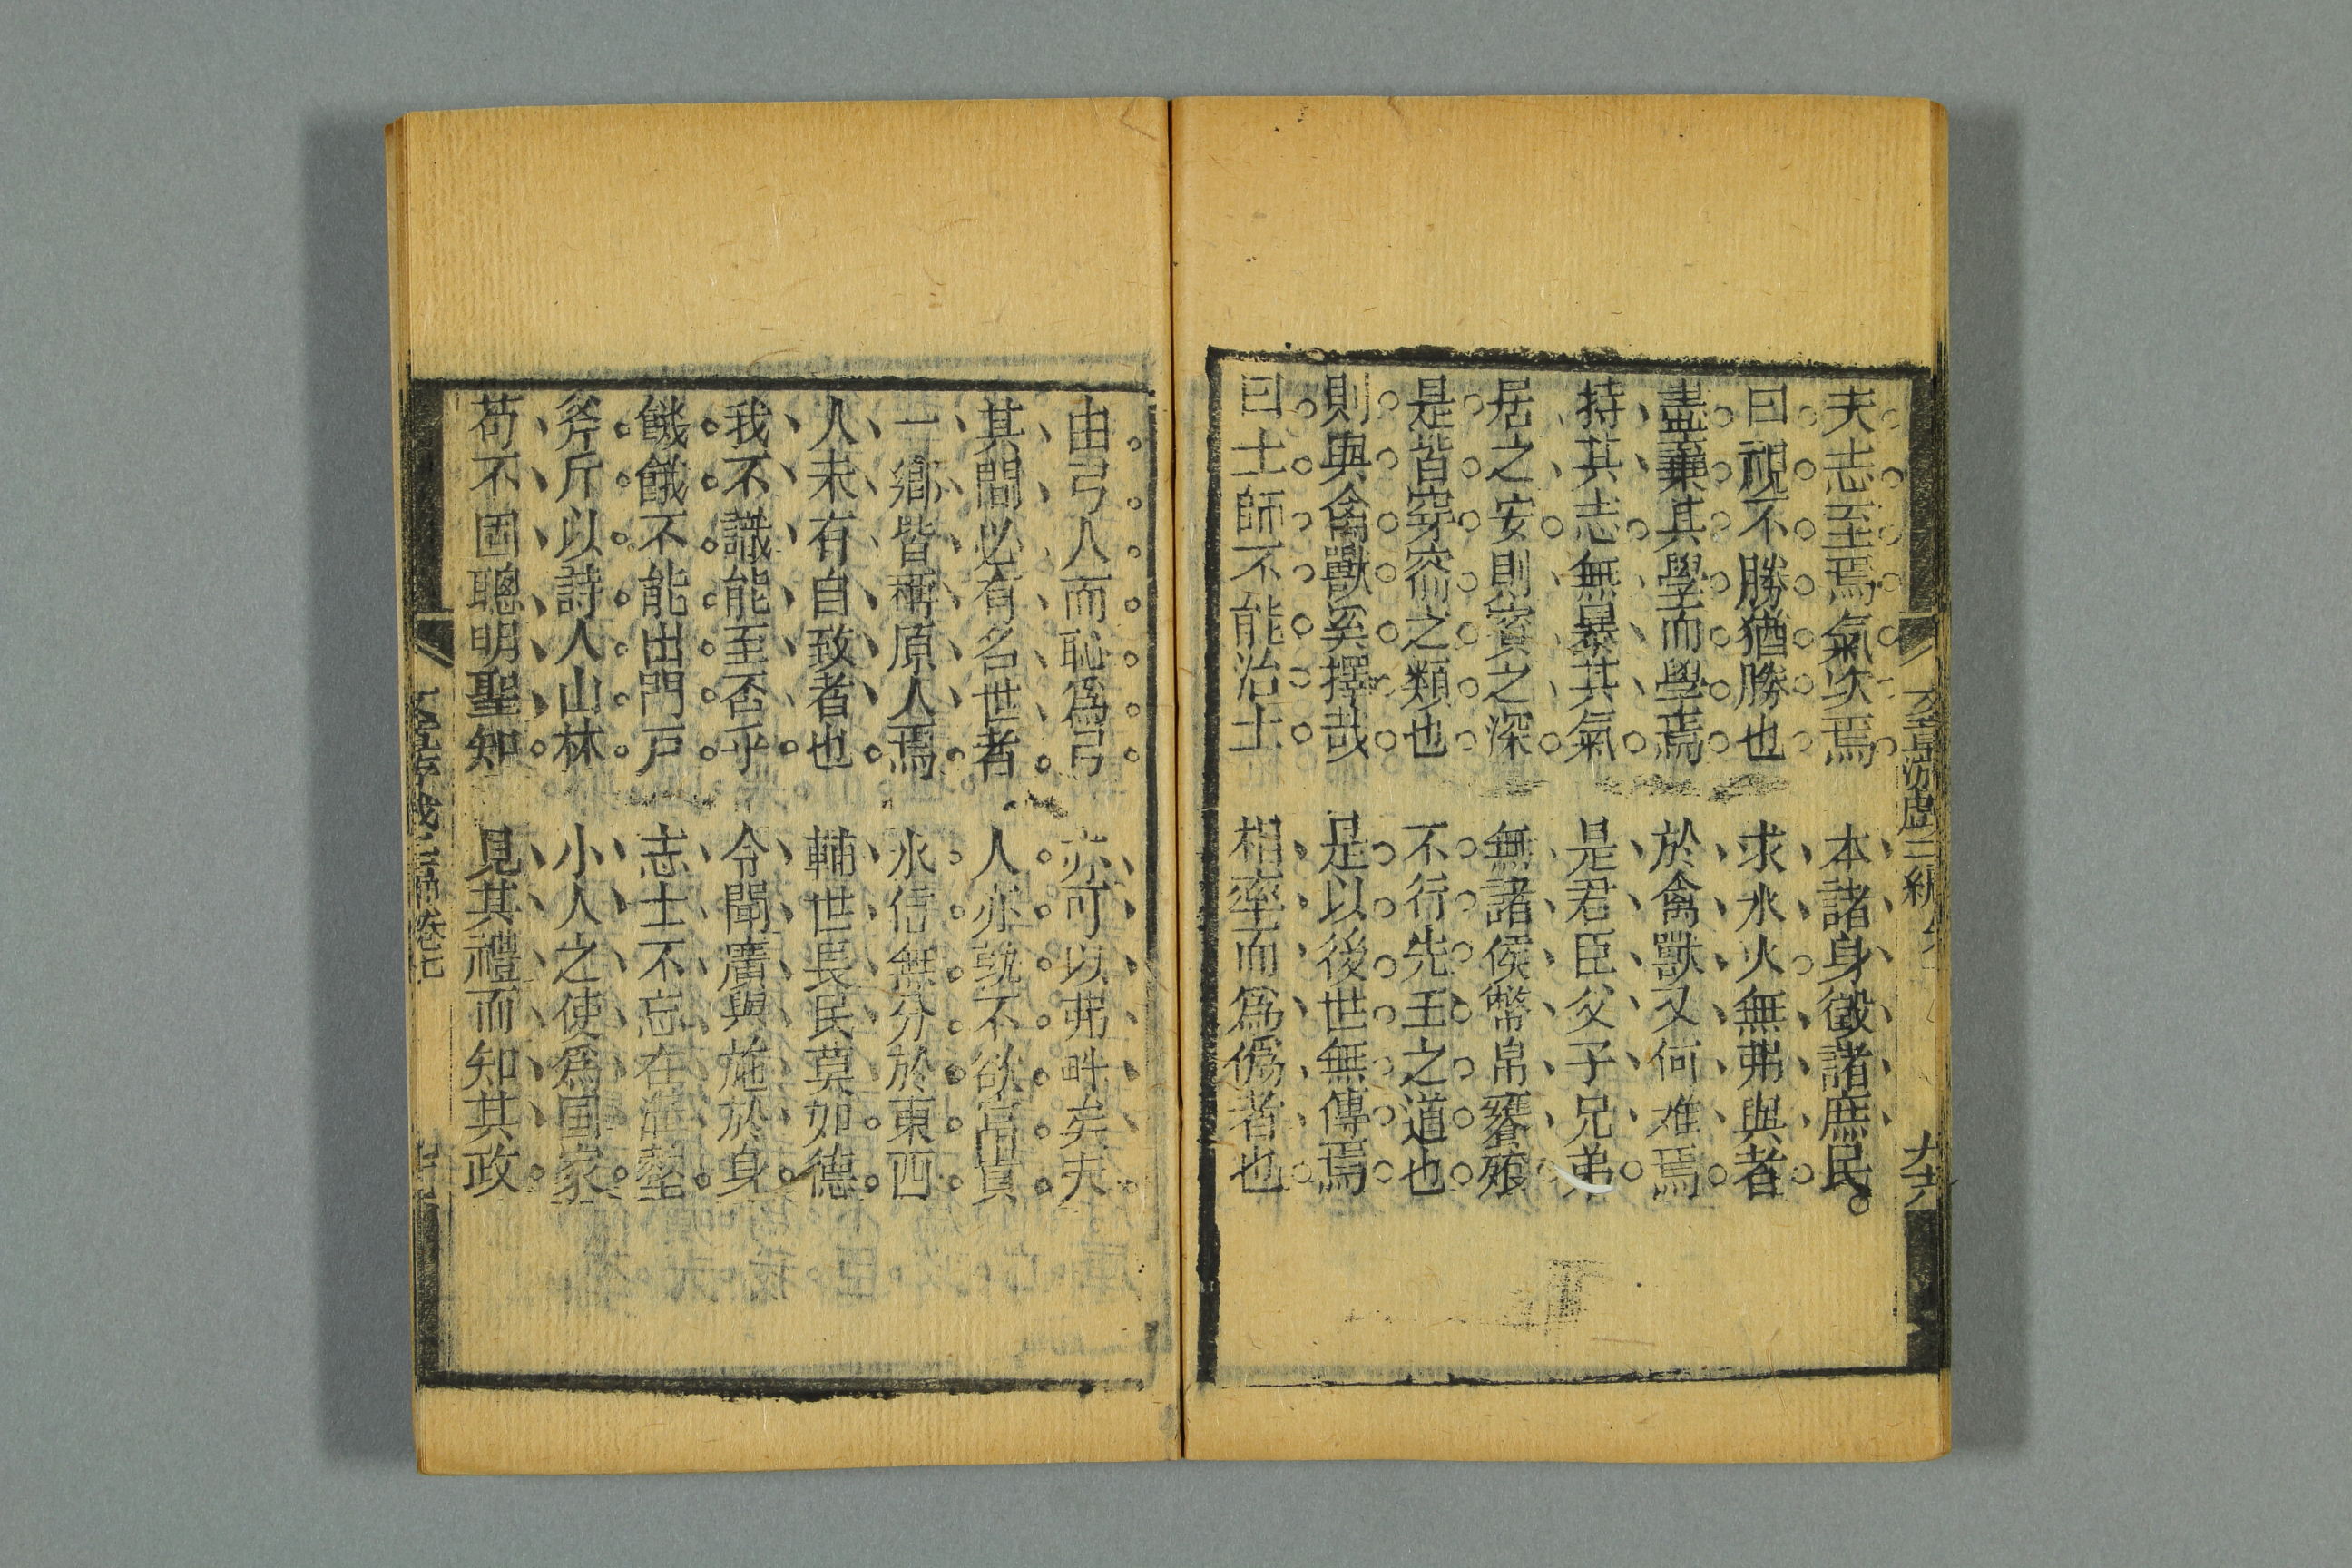 夫志至焉氣次焉　本諸身徵諸庶民
曰視不勝猶勝也　求水火無弗與者
盡棄其學而學焉　於禽獸又何难焉
持其志無暴其氣　是君臣父子兄弟
居之安則資之深　無諸侯幣帛饔飧
是皆穿窬之類也　不行先王之道也
則與禽獸奚擇哉　是以後世無傳焉
曰士師不能治士　相率而為偽者也
由弓人而恥為弓　亦可以弗畔矣夫
其間必有名世者　人亦孰不欲富貴
一鄉皆稱原人焉　水信無分於東西
人未有自致者也　輔世長民莫如德
我不識能至否乎　令聞廣與施於身
饑餓不能出門戶　志士不忘在溝壑
斧斤以詩人山林　小人之使為国家
苟不固聰明聖知　見其禮而知其政